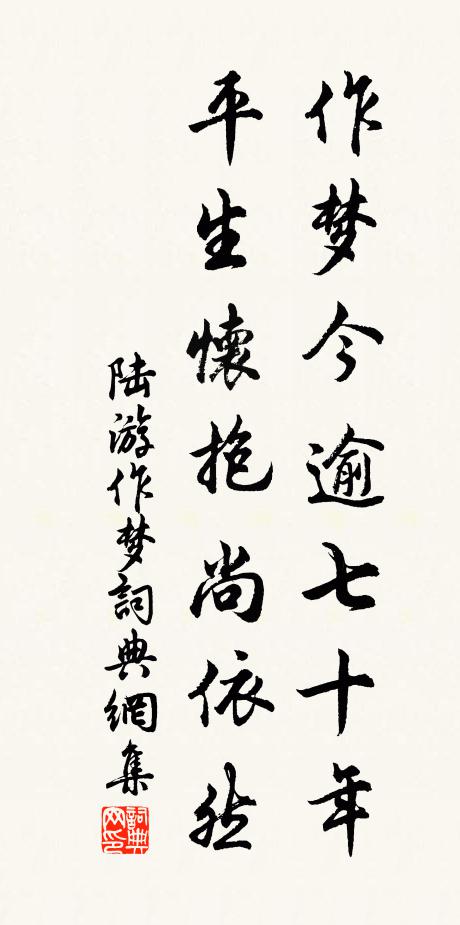 作梦今逾七十年
平生懷抱尚依然
陆游作梦詞典網集
詞典网印